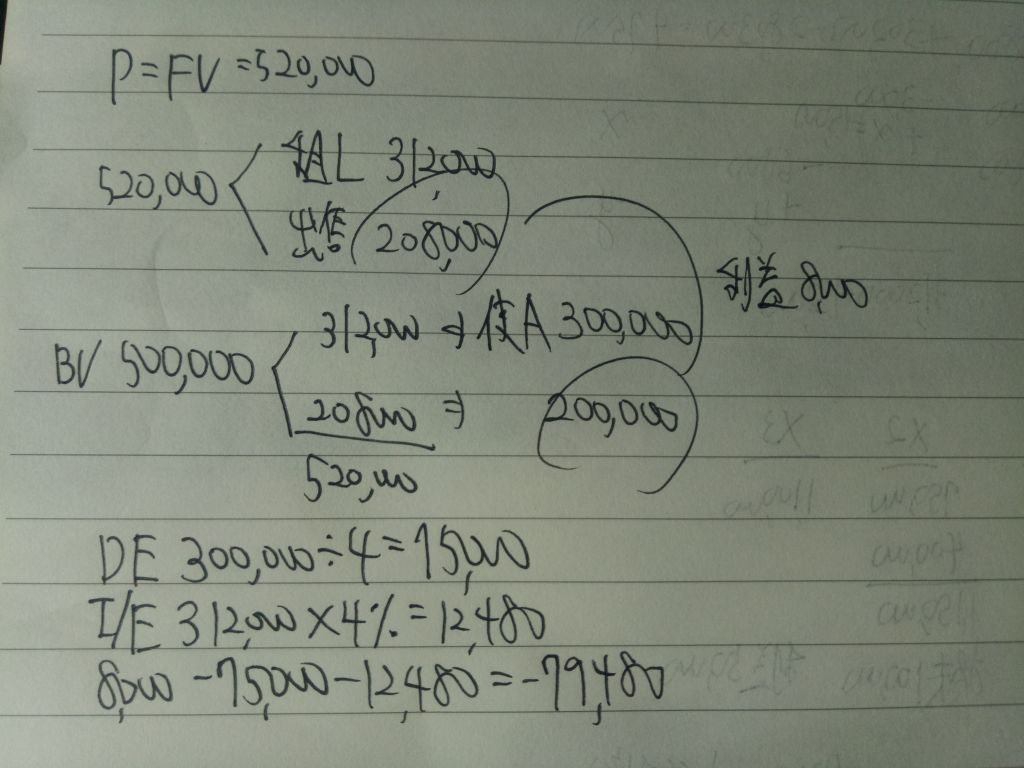 P=FV=520,000
520,000
租L 312000
出售 208,000
利益 8,000
BV 500,000
312,000 ⇒ 使A 300,000
208000 ⇒ 200,000
520,000
DE 300,000÷4=75,000
I/E 312,000×4%=12,480
8,000-75,000-12,480=-79,480